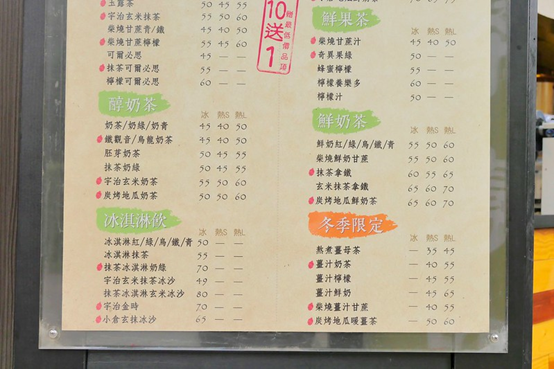 玉露茶 50 45 55
宇治玄米抹茶 55 50 60
柴燒甘蔗青/鐵 45 40 50
柴燒甘蔗檸檬 55 45 60
可爾必思 45 — —
抹茶可爾必思 55 — —
檸檬可爾必思 60 — —
醇奶茶 冰 熱S 熱L
奶茶/奶綠/奶青 45 40 50
鐵觀音/烏龍奶茶 45 40 50
胚芽奶茶 50 45 55
抹茶奶綠 50 45 55
宇治玄米奶茶 55 50 60
炭烤地瓜奶茶 50 50 60
冰淇淋飲 冰 熱S 熱L
冰淇淋紅/綠/烏/鐵/青 50 — —
冰淇淋抹茶 55 — —
抹茶冰淇淋奶綠 70 — —
宇治玄米抹茶冰沙 49 — —
抹茶冰淇淋玄米冰沙 80 — —
宇治金時 70 — —
小倉玄抹冰沙 65 — —
10送1
贈最低價品項
鮮果茶 冰 熱S 熱L
柴燒甘蔗汁 45 40 50
奇異果綠 50 — —
蜂蜜檸檬 55 — —
檸檬養樂多 60 — —
檸檬汁 50 — —
鮮奶茶 冰 熱S 熱L
鮮奶紅/綠/烏/鐵/青 55 50 60
柴燒鮮奶甘蔗 55 50 60
抹茶拿鐵 60 55 65
玄米抹茶拿鐵 65 60 70
炭烤地瓜鮮奶茶 65 60 70
冬季限定 冰 熱S 熱L
熬煮薑母茶 — 35 45
薑汁奶茶 — 40 55
薑汁檸檬 — 45 55
薑汁鮮奶 — 45 65
柴燒薑汁甘蔗 — 40 55
炭烤地瓜暖薑茶 — 50 60